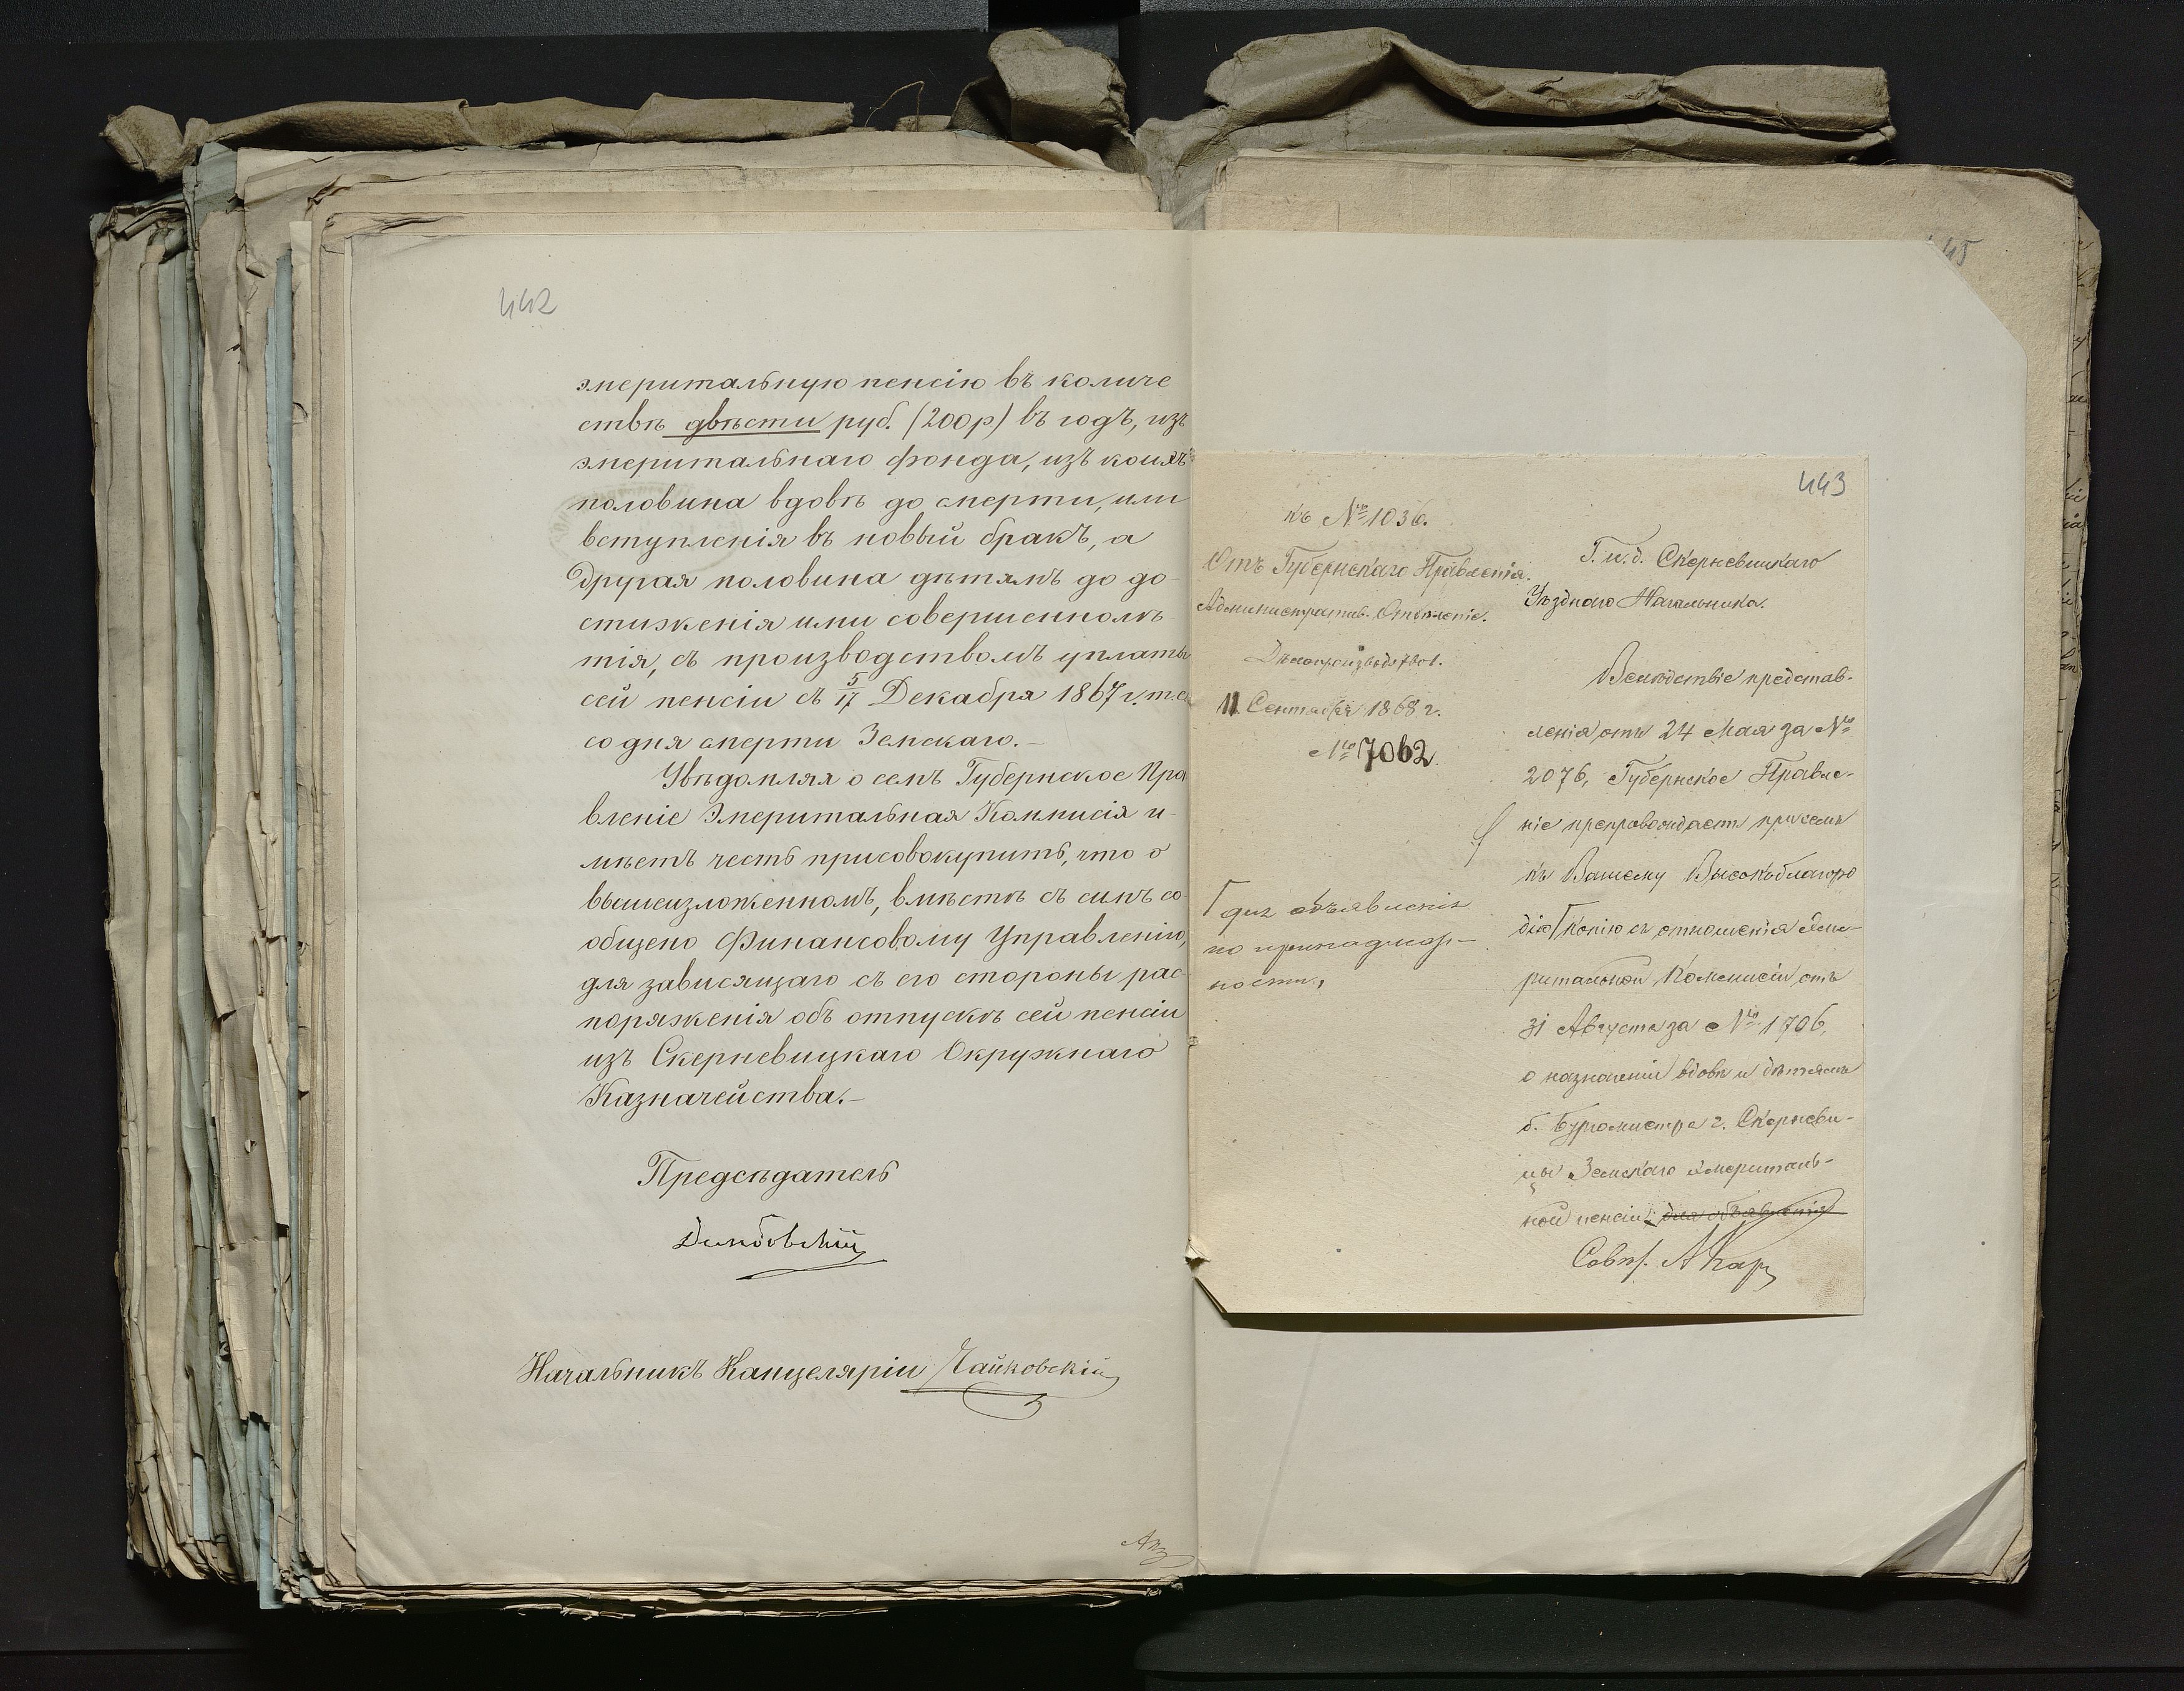 442
эмеритальную пенсію въ количе
ствѣ двѣсти руб. (200р) въ годъ, изъ
эмеритальнаго фонда, изъ коихъ
половина вдовѣ до смерти, или
вступленія въ новый бракъ, а
другая половина дѣтямъ до до-
стиженія ими совершеннолѣ
тія, съ производствомъ уплаты
сей пенсіи съ 5/17 Декабря 1867 г. т. е.
со дня смерти Земскаго.—
Увѣдомляя о семъ Губернское Пра
вленіе Эмеритальная Коммисія и-
мѣетъ честь присовокупить, что о
вышеизложенномъ, вмѣстѣ съ симъ со
общено Финансовому Управленію,
для зависящаго съ его стороны рас-
поряженія объ отпускѣ сей пенсіи
изъ Скерневицкаго Окружнаго
Казначейства.—
Предсѣдатель
Начальникъ Канцеляріи Чайковскій
45
443
къ № 1036.
Отъ Губернскаго Правленія.
Административ. Отдѣленіе.
Дѣлопроизводство 1.
11 Сентября 1868 г.
№ 7062.
для объявленія
по принадлеж-
ности,
Г. и. д. Скерневицкаго
Уѣзднаго Начальника.
Вслѣдствіе представ-
ленія отъ 24 Мая за №
2076, Губернское Правле-
ніе препровождаетъ при семъ
къ Вашему Высокоблагоро
дію копію съ отношенія Эме-
ритальной Коммисіи отъ
31 Августа за № 1706,
о назначеніи вдовѣ и дѣтямъ
б. Бурмистра г. Скерневи-
цы Земскаго эмериталь-
ной пенсіи, для объявленія
Совѣт.